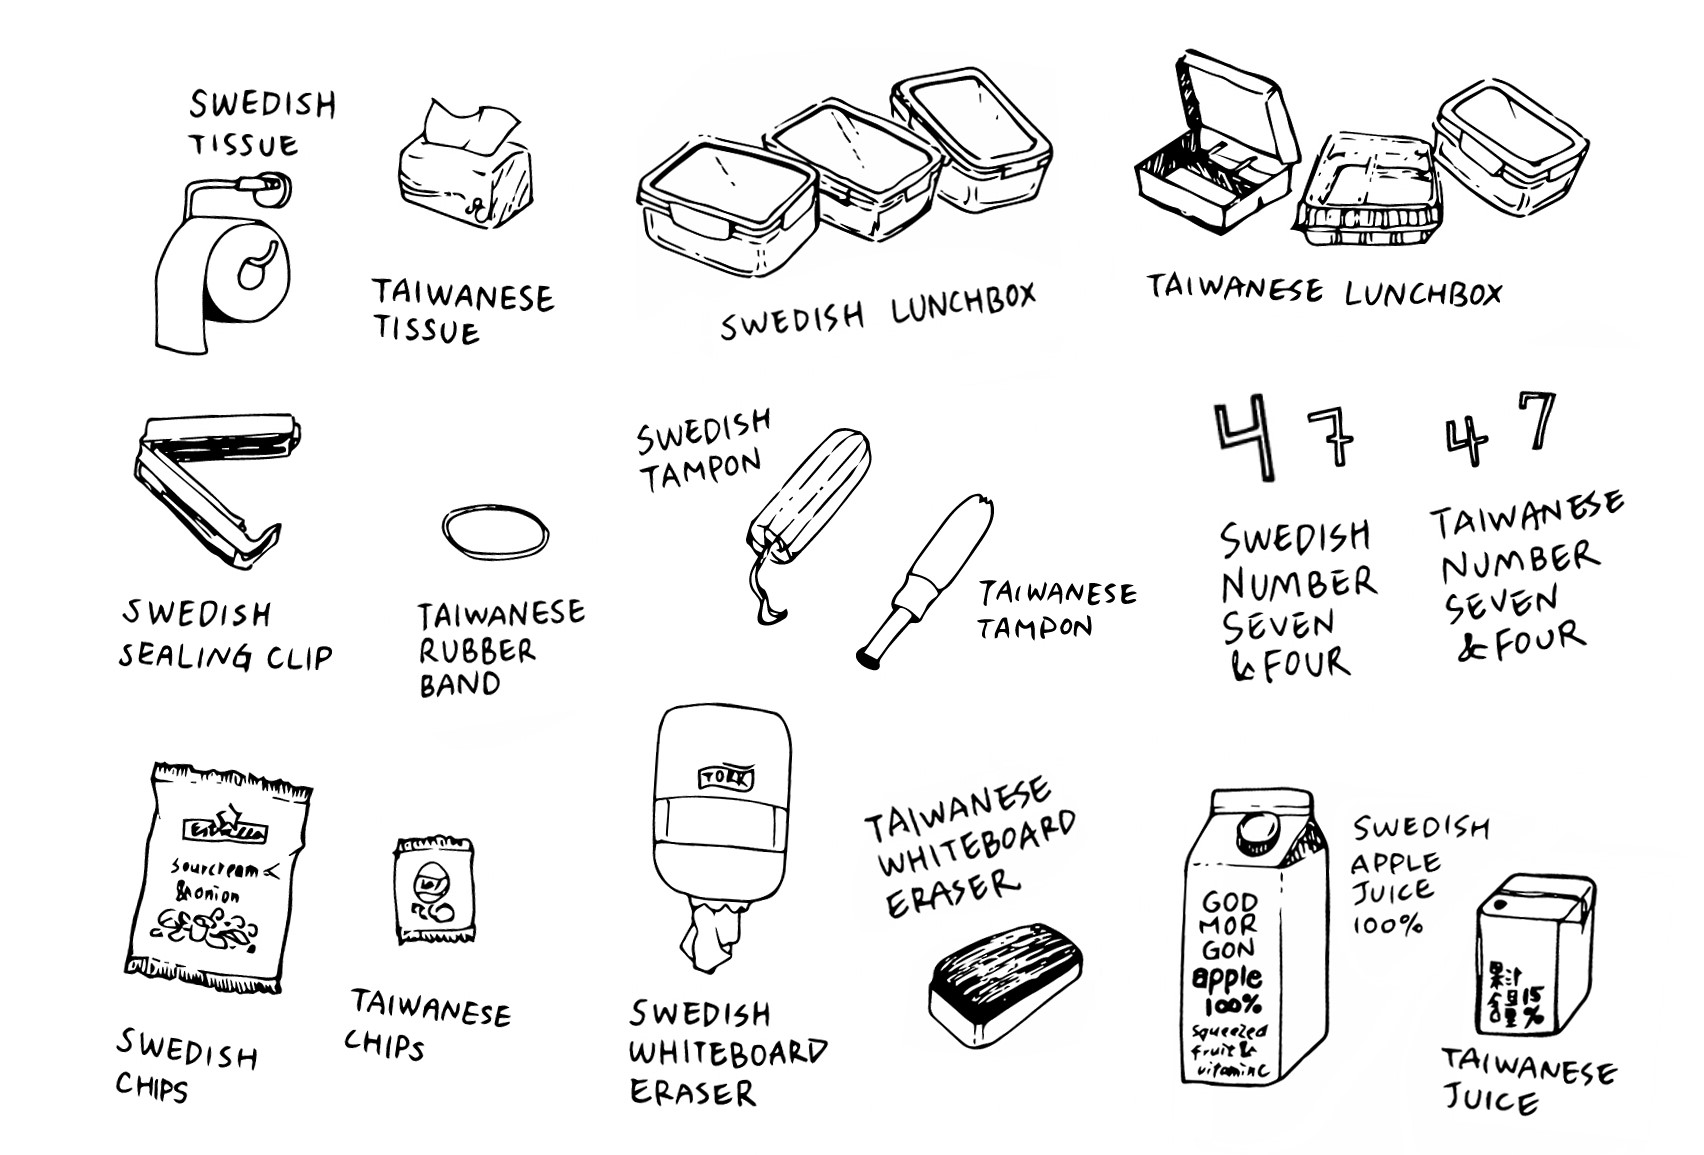 SWEDISH
TISSUE
TAIWANESE
TISSUE
SWEDISH LUNCHBOX
TAIWANESE LUNCHBOX
SWEDISH
SEALING CLIP
TAIWANESE
RUBBER
BAND
SWEDISH
TAMPON
TAIWANESE
TAMPON
4 7
SWEDISH
NUMBER
SEVEN
& FOUR
4 7
TAIWANESE
NUMBER
SEVEN
& FOUR
Estrella
sourcream
& onion
SWEDISH
CHIPS
TAIWANESE
CHIPS
TORK
SWEDISH
WHITEBOARD
ERASER
TAIWANESE
WHITEBOARD
ERASER
GOD
MOR
GON
apple
100%
squeezed
fruit &
vitamin C
SWEDISH
APPLE
JUICE
100%
果汁
含量15
%
TAIWANESE
JUICE